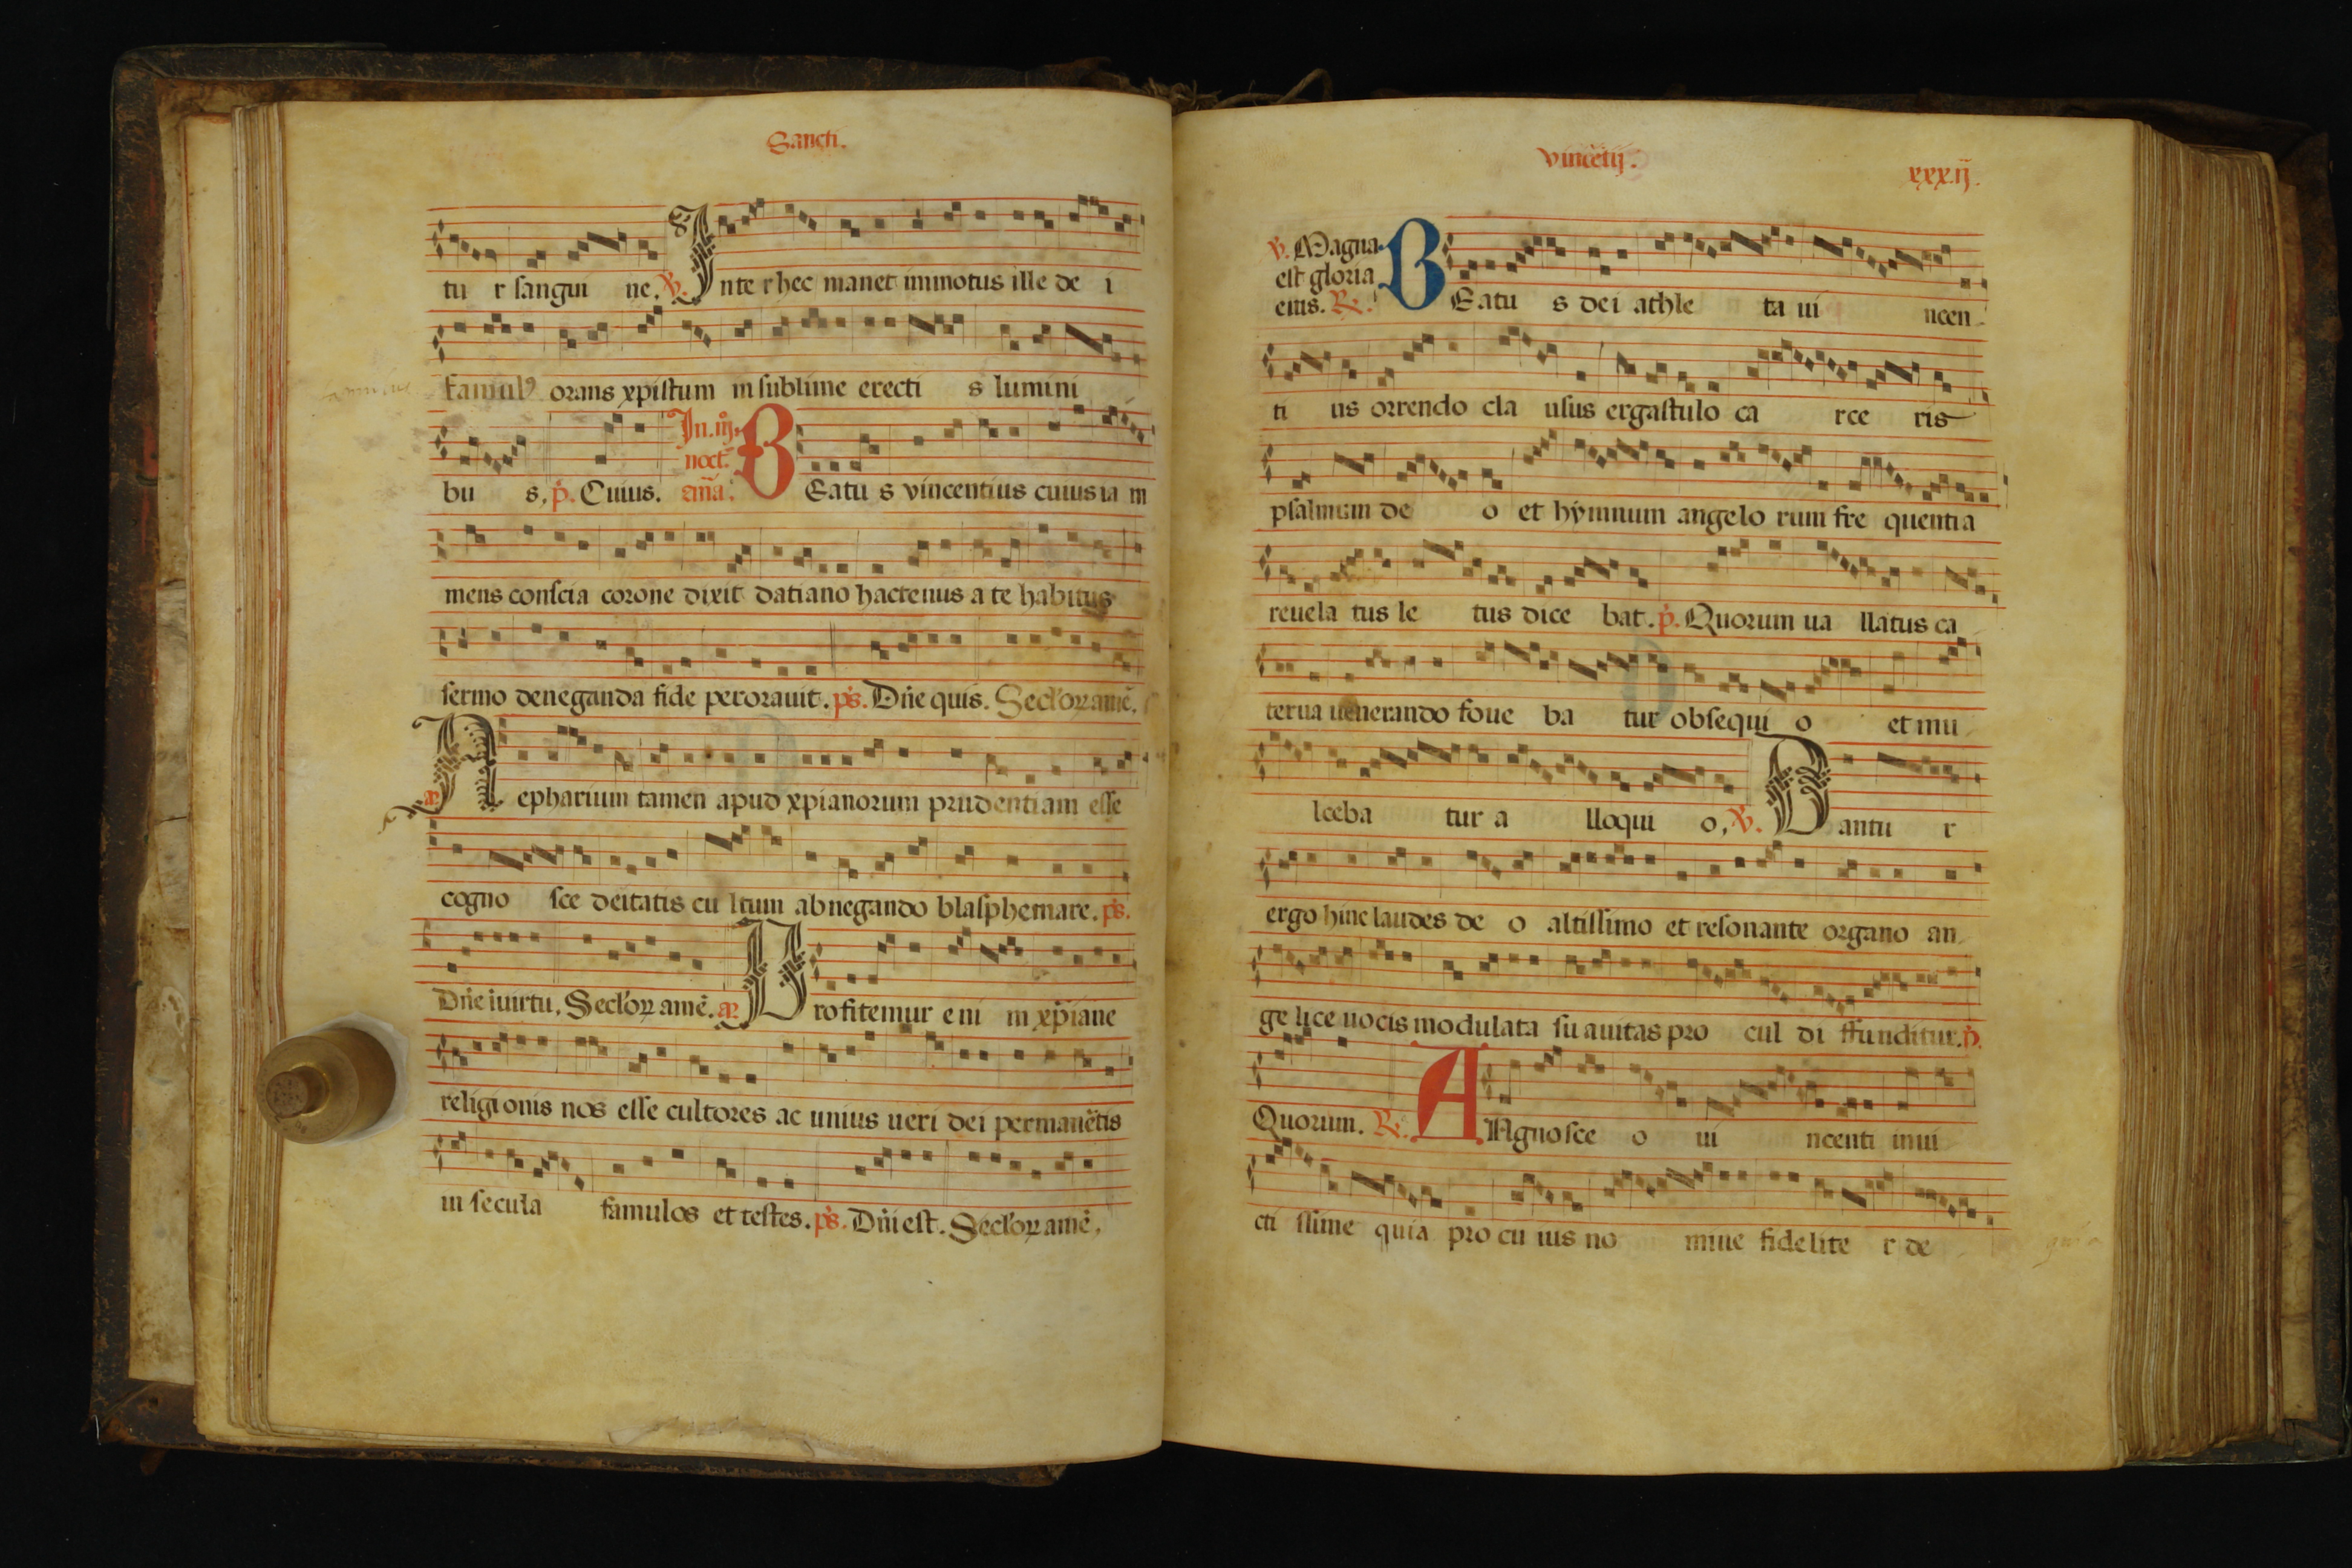 Sancti.
tu r sangui ne. ℣. Inte r hec manet inmotus ille de i
famulꝰ orans xpistum in sublime erecti s lumini
bu s. p̃. Cuius.
In .iij.
noct.
añа. BEatu s vincentius cuius ia m
mens conscia corone dixit datiano hactenus a te habitus
sermo deneganda fide perorauit. p̃s. Dñe quis. Seclꝰoꝝ amẽ.
añ Nepharium tamen apud xpianorum prudentiam esse
cogno sce deitatis cu ltum abnegando blasphemare. p̃s.
Dñe iuirtu. Seclꝰoꝝ amẽ. añ Profitemur eni m xp̃iane
religionis nos esse cultores ac unius ueri dei permanẽtis
in secula famulos et testes. p̃s. Dñi est. Seclꝰoꝝ amẽ.
vincẽtij. xxxij.
℣. Magna
est gloria
eius. ℟. BEatu s dei athle ta ui ncen-
ti us orrendo cla usus ergastulo ca rce ris
psalmum de o et hymnum angelo rum fre quentia
reuela tus le tus dice bat. p̃. Quorum ua llatus ca-
terua uenerando foue ba tur obsequi o et mu-
lceba tur a lloqui o. ℣. Dantu r
ergo hinc laudes de o altissimo et resonante organo an-
ge lice uocis modulata su auitas pro cul di ffunditur. p̃.
Quorum. ℟. AAgnosce o ui ncenti inui
cti ssime quia pro cu ius no mine fidelite r de